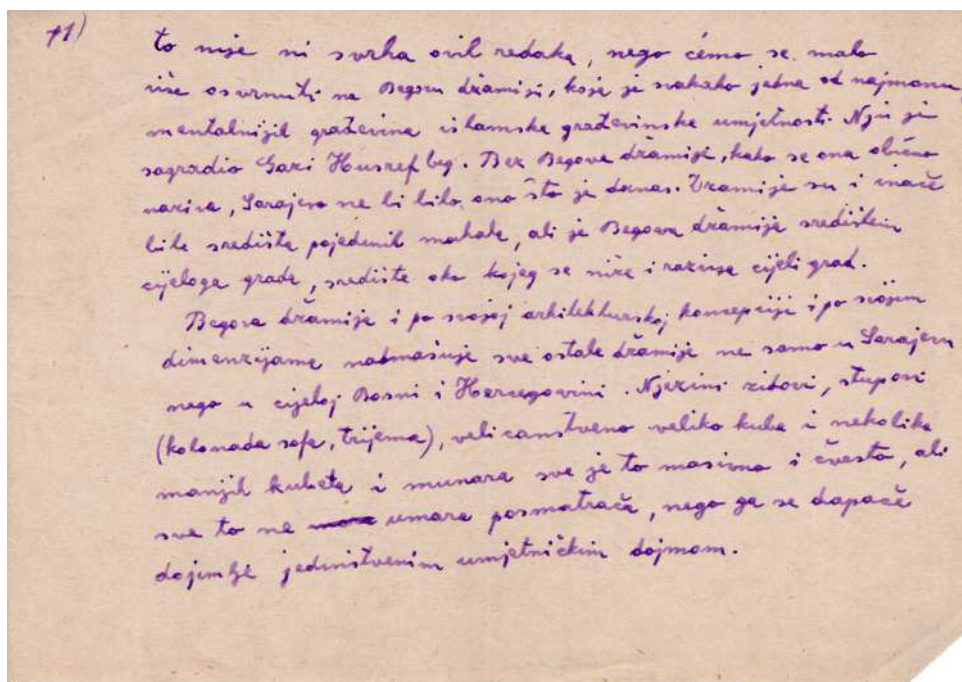 11)
to nije ni svrha ovih redaka, nego ćemo se malo
više osvrnuti na Begovu džamiju, koja je svakako jedna od najmonu
mentalnijih građevina islamske građevinske umjetnosti. Nju je
sagradio Gazi Husref beg. Bez Begove džamije, kako se ona obično
naziva, Sarajevo ne bi bilo ono što je danas. Džamije su i inače
bile središta pojedinih mahala, ali je Begova džamija središtem
cijeloga grada, središte oko kojeg se niže i razvija cijeli grad.
Begova džamija i po svojoj arhitekturskoj koncepciji i po svojim
dimenzijama nadmašuje sve ostale džamije ne samo u Sarajevu
nego u cijeloj Bosni i Hercegovini. Njezini zidovi, stupovi
(kolonada sofa, trijema), veličanstveno veliko kube i nekoliko
manjih kubeta i munara sve je to masivno i čvrsto, ali
sve to ne umara posmatrača, nego ga se dapače
dojimlje jedinstvenim umjetničkim dojmom.